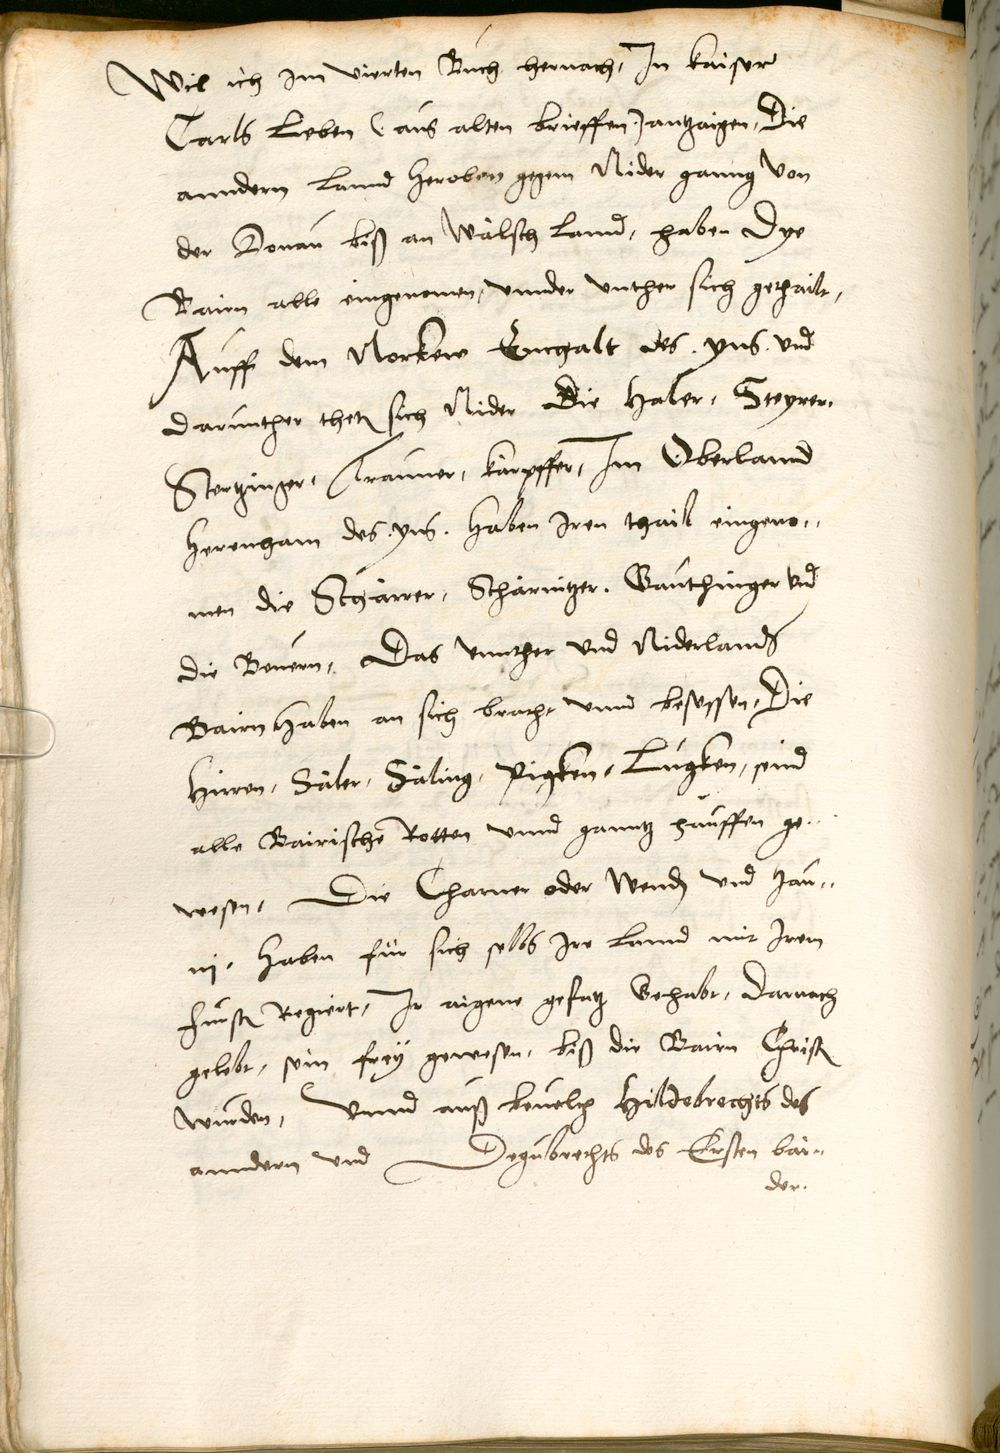 Wil ich im vierten Buch hernach, In kaiser
Carls Leben (aus alten brieffen) antzaigen, Die
anndern lannd heroben gegem Nider ganng von
der Donau biß an Wälsch lannd, haben Dye
Bairn alle eingenomen, unnder unther sich gethailt,
Auff dem Norkew Enhalt des . yns . und
darunther thet sich Nider Die Haler, Steyrer,
Stertzinger, Trauner, kärpffer, Im Oberlannd
herenham des . yns . haben Iren thail eingeno,,
men die Schärrer, Scharnitzer, Gauthinger und
die Beuern, Das unnther und Niderland
Bairn haben an sich bracht unnd besessen, Die
Hirren, Säler, Häling, Pigken, Lugken, seind
alle Bairische Rotten unnd ganntz hauffen ge,,
wesen, Die Charner oder Wend und hau,,
nj, haben für sich selbs Ire lannd mit Irem
fürst Regiert, Ir aigene gesatz gehabt, Darnach
gelebt, sein frey gewesen, biß die Bairn Christ
wurden, Unnd auß bevelch Hildebrechts des
anndern und Degubrechts des Ersten bai,,
der.